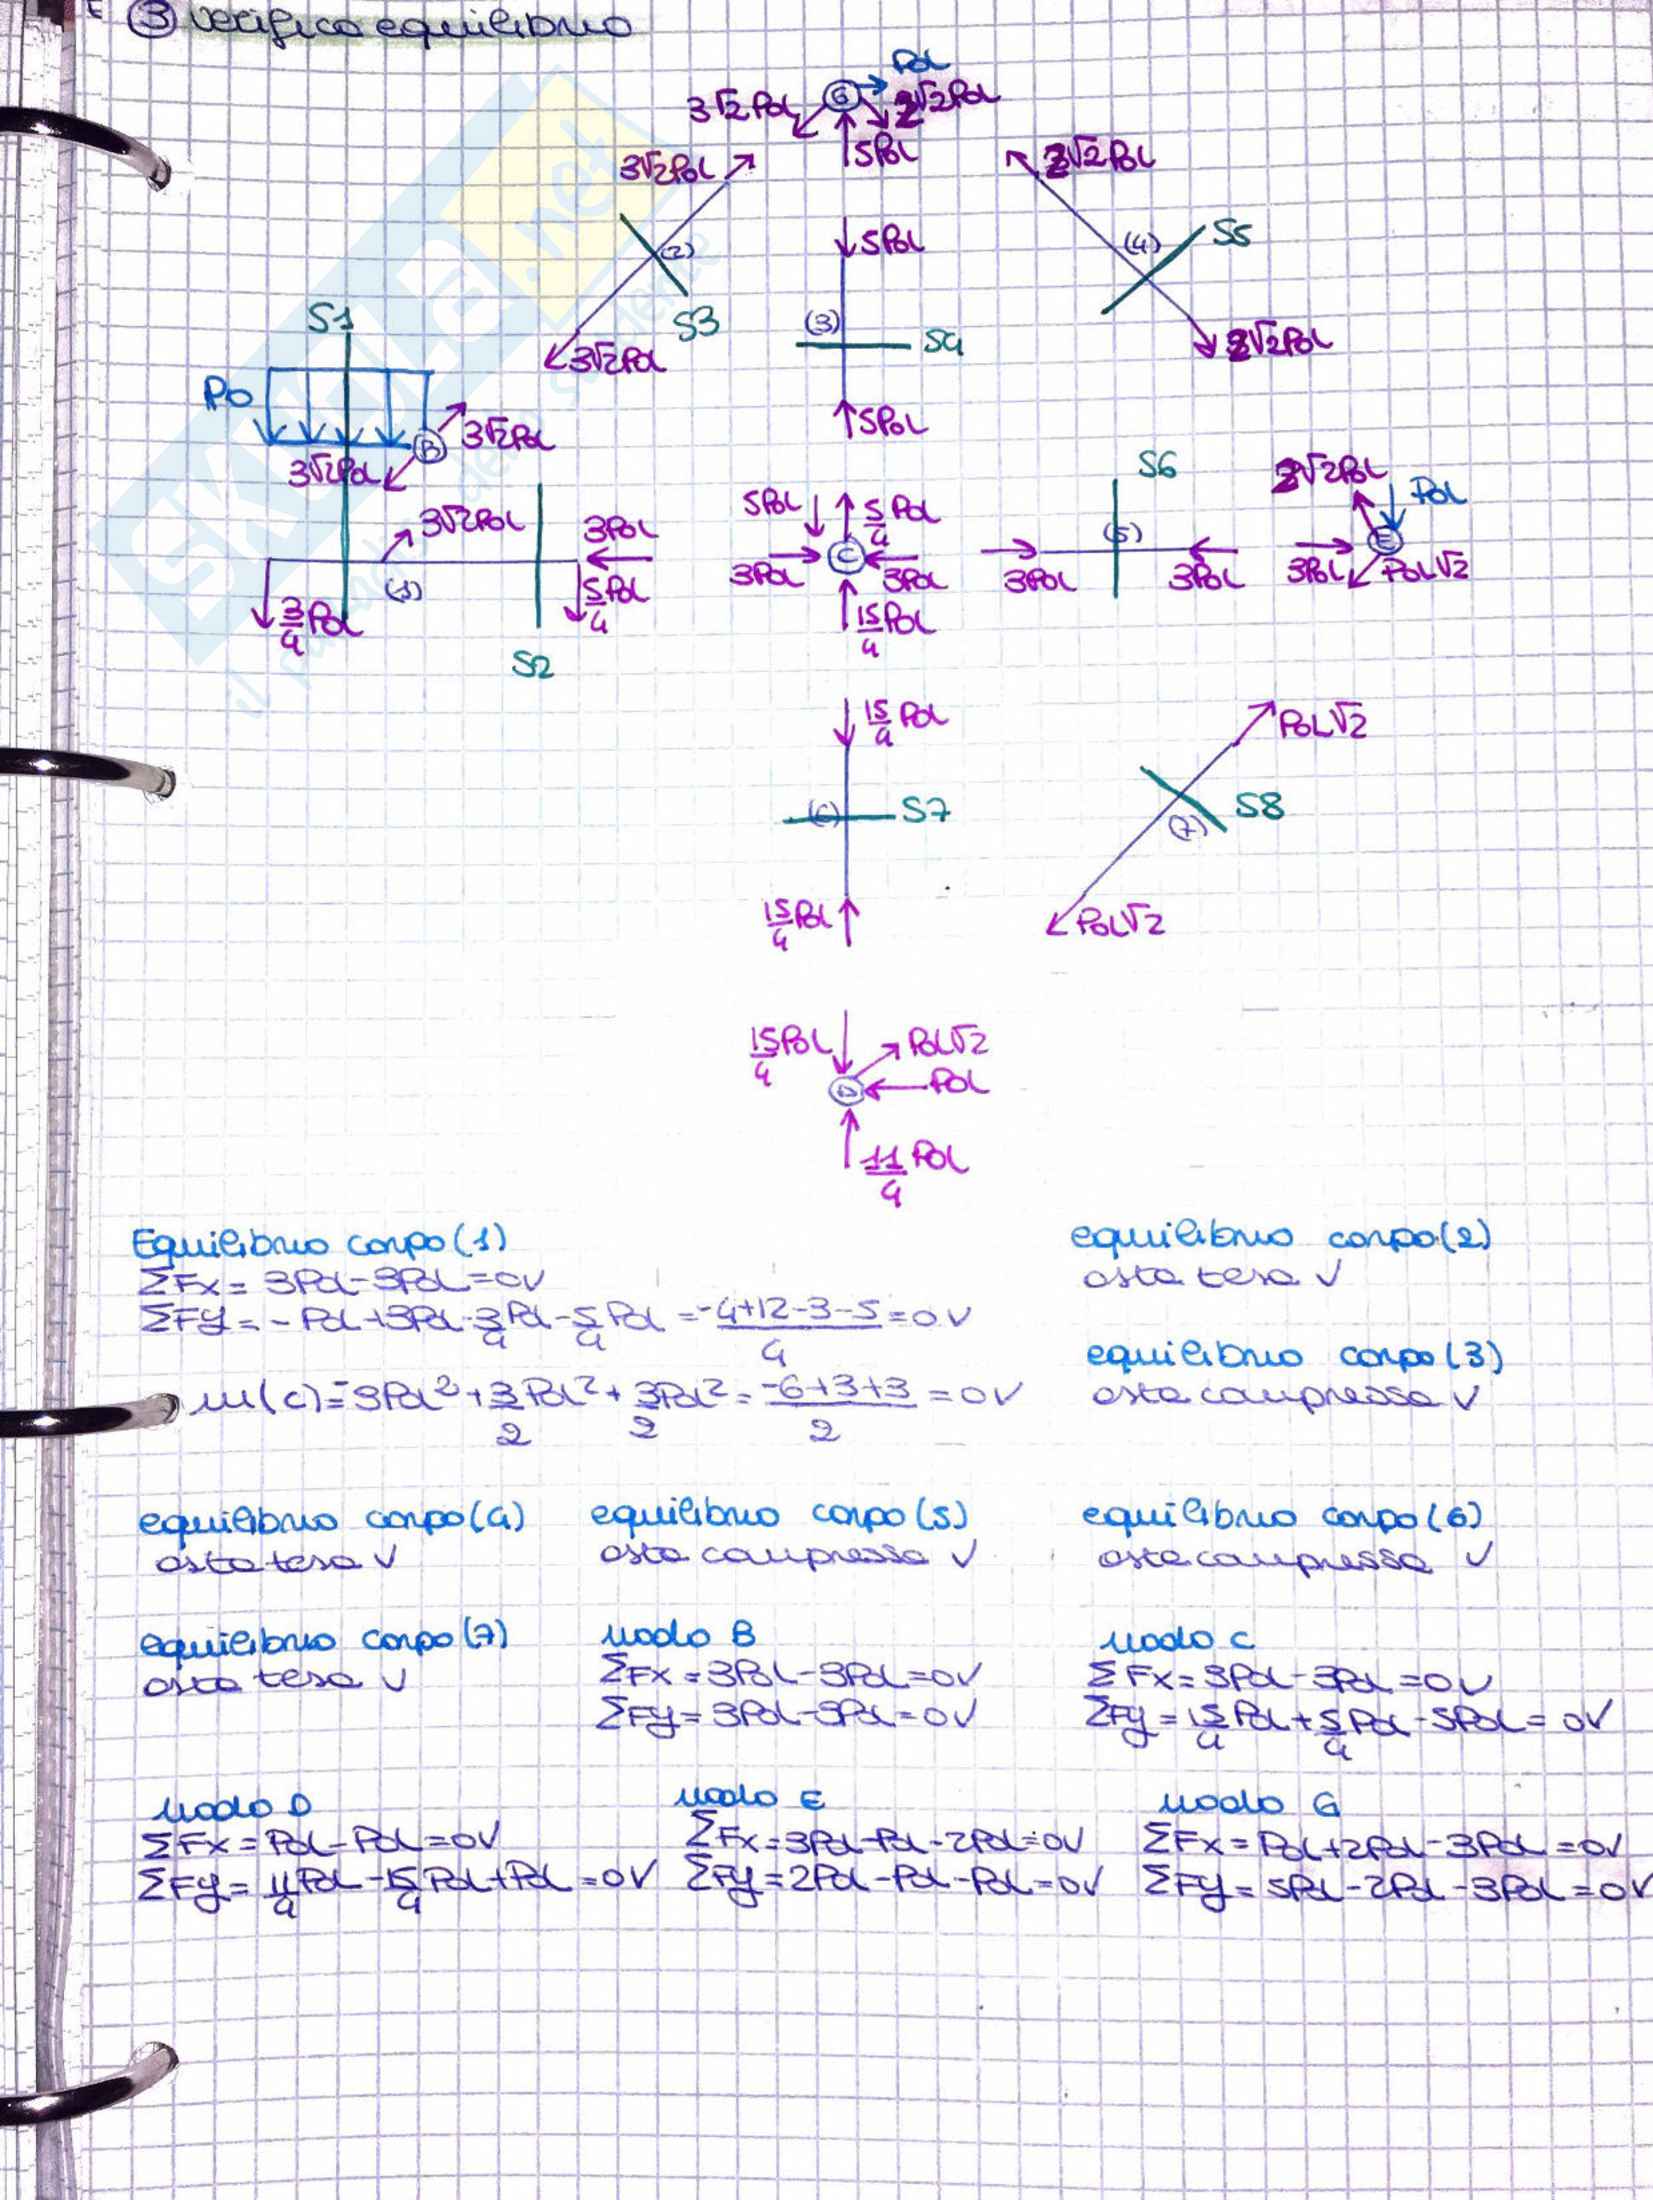 ③ verifico equilibrio
PoL
3√2PoL
G
2√2PoL
5PoL
3√2PoL
2√2PoL
(2)
S3
3√2PoL
5PoL
(3)
S4
5PoL
(4)
S5
2√2PoL
S1
Po
B
3√2PoL
3√2PoL
3√2PoL
3PoL
(1)
3/4 PoL
5/4 PoL
S2
5PoL
5/4 PoL
C
3PoL
3PoL
15/4 PoL
S6
(5)
3PoL
3PoL
2√2PoL
PoL
E
3PoL
PoL√2
15/4 PoL
(6)
S7
15/4 PoL
PoL√2
S8
(7)
PoL√2
15/4 PoL
PoL√2
D
PoL
11/4 PoL
Equilibrio corpo (1)
ΣFx = 3PoL - 3PoL = 0 ✓
ΣFy = - PoL + 3PoL - 3/4 PoL - 5/4 PoL = (-4+12-3-5)/4 = 0 ✓
m(c) = -3PoL² + 3/2 PoL² + 3/2 PoL² = (-6+3+3)/2 = 0 ✓
equilibrio corpo (2)
asta tesa ✓
equilibrio corpo (3)
asta compressa ✓
equilibrio corpo (4)
asta tesa ✓
equilibrio corpo (5)
asta compressa ✓
equilibrio corpo (6)
asta compressa ✓
equilibrio corpo (7)
asta tesa ✓
nodo B
ΣFx = 3PoL - 3PoL = 0 ✓
ΣFy = 3PoL - 3PoL = 0 ✓
nodo C
ΣFx = 3PoL - 3PoL = 0 ✓
ΣFy = 15/4 PoL + 5/4 PoL - 5PoL = 0 ✓
nodo D
ΣFx = PoL - PoL = 0 ✓
ΣFy = 11/4 PoL - 15/4 PoL + PoL = 0 ✓
nodo E
ΣFx = 3PoL - PoL - 2PoL = 0 ✓
ΣFy = 2PoL - PoL - PoL = 0 ✓
nodo G
ΣFx = PoL + 2PoL - 3PoL = 0 ✓
ΣFy = 5PoL - 2PoL - 3PoL = 0 ✓